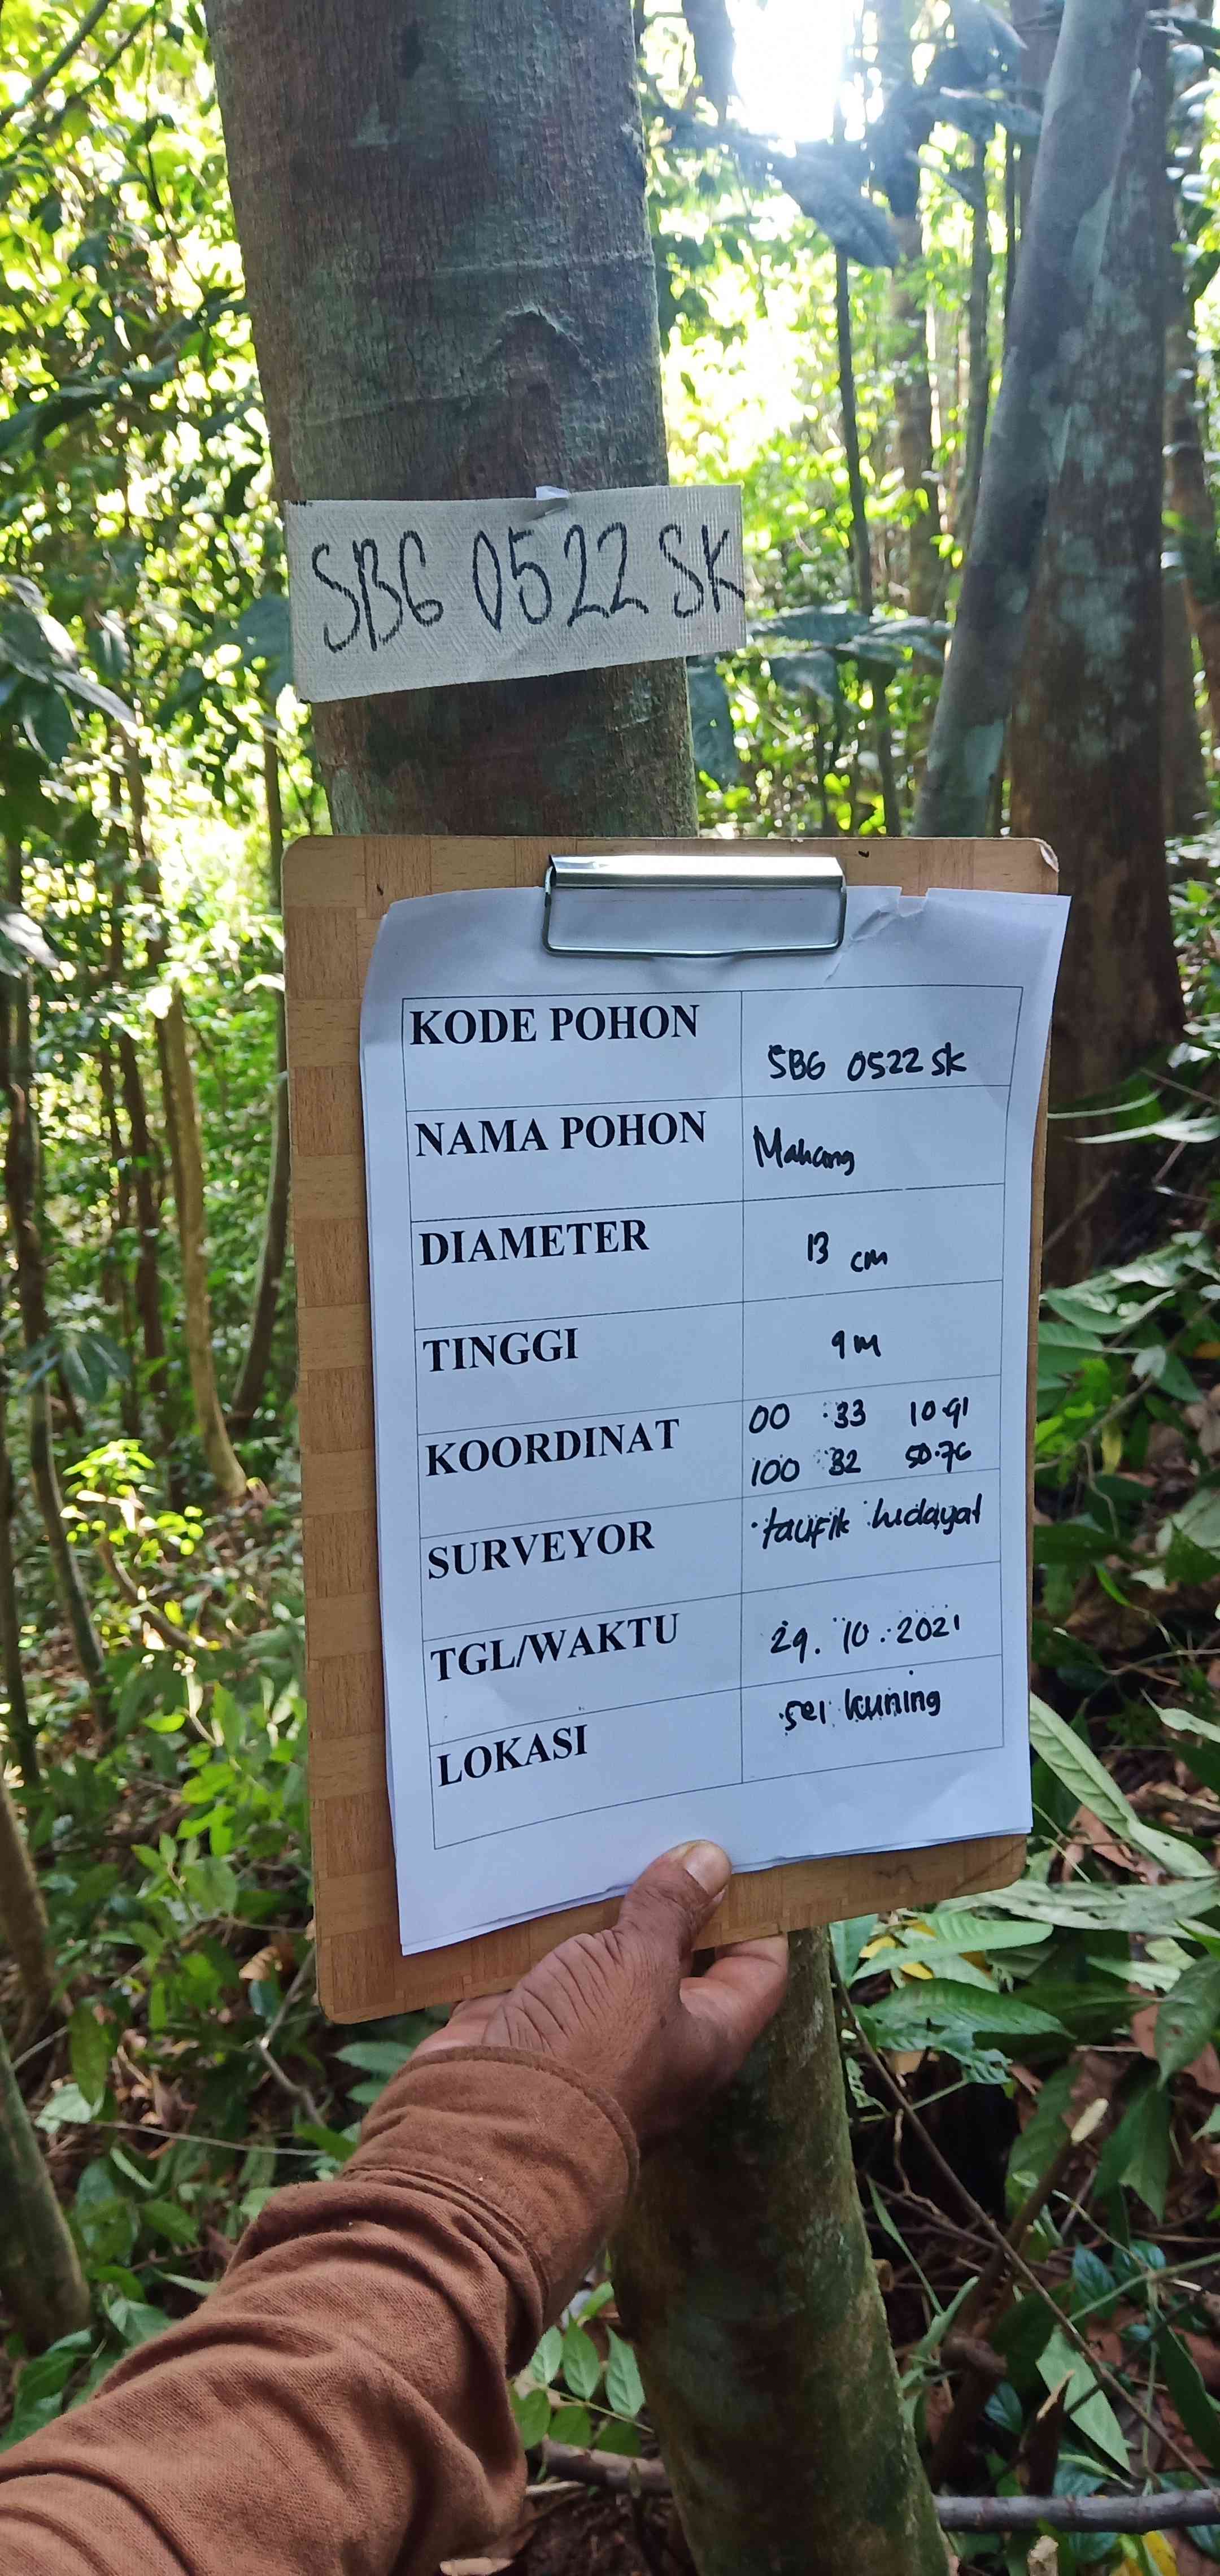 SBG 0522 SK
KODE POHON
SBG 0522 SK
NAMA POHON
Mahang
DIAMETER
13 cm
TINGGI
9 m
KOORDINAT
00 33 10.91
100 32 50.76
SURVEYOR
taufik hidayat
TGL/WAKTU
29.10.2021
LOKASI
sei kuning